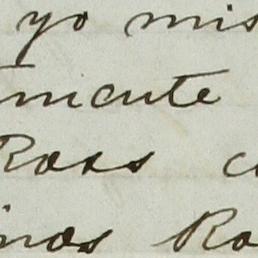 yo mis
mente
Ross c
inos Ro